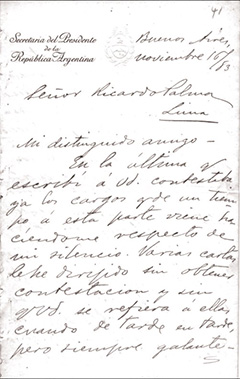 41
Secretaría del Presidente
de la
República Argentina
Buenos Aires,
noviembre 16/83
Señor Ricardo Palma
Lima
Mi distinguido amigo—
En la última q
escribí á Ud. contestaba
ya los cargos q de un tiem
po a esta parte viene ha
ciendome respecto de
mi silencio. Varias cartas
le he dirijido sin obtener
contestacion y sin
q Ud. se refiera á ellas
cuando de tarde en tarde,
pero siempre galante-